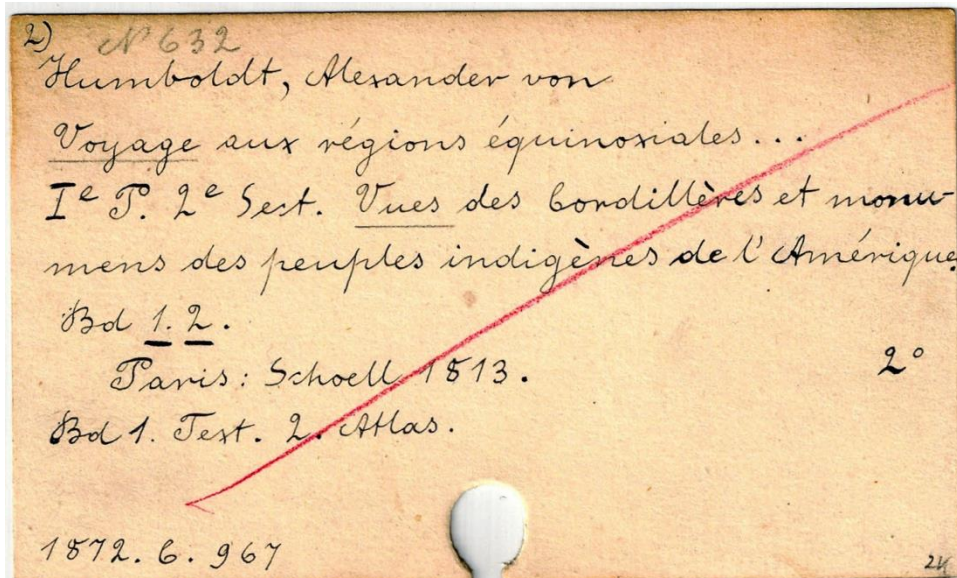 2)
N 632
Humboldt, Alexander von
Voyage aux régions équinoxiales...
Iᵉ P. 2ᵉ Sect. Vues des Cordillères et monu-
mens des peuples indigènes de l'Amérique.
Bd 1. 2.
Paris: Schoell 1813.
2°
Bd 1. Text. 2. Atlas.
1872. 6. 967